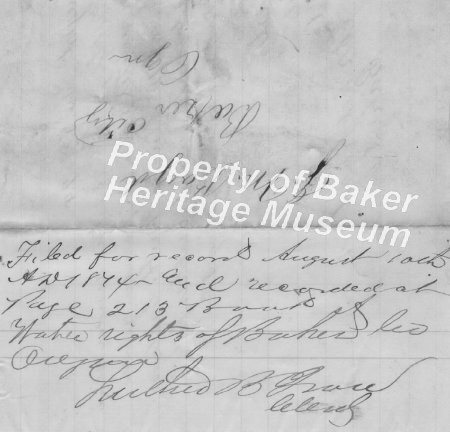 Ogn
Baker City
Property of Baker
Heritage Museum
Filed for record August 10th
AD 1874 and recorded at
Page 213 Book
Water rights of Baker Co
Oregon
Luther B
Clerk